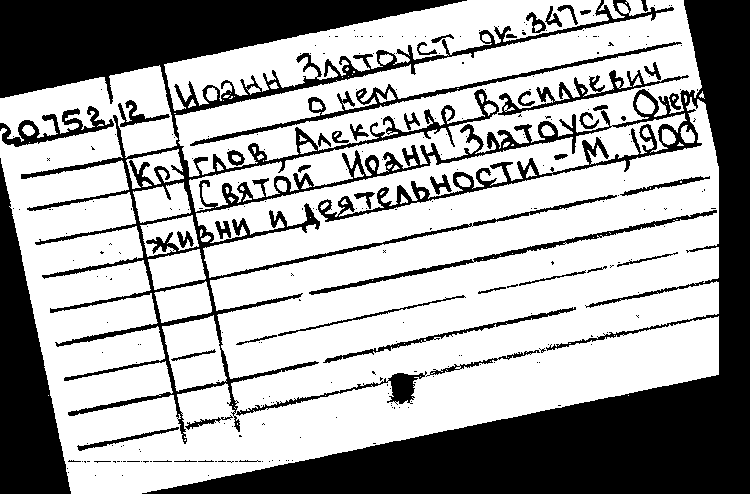 Иоанн Златоуст, ок. 347-407,
20.752,12 о нем
Круглов, Александр Васильевич
Святой Иоанн Златоуст. Очерк
жизни и деятельности. - М., 1900